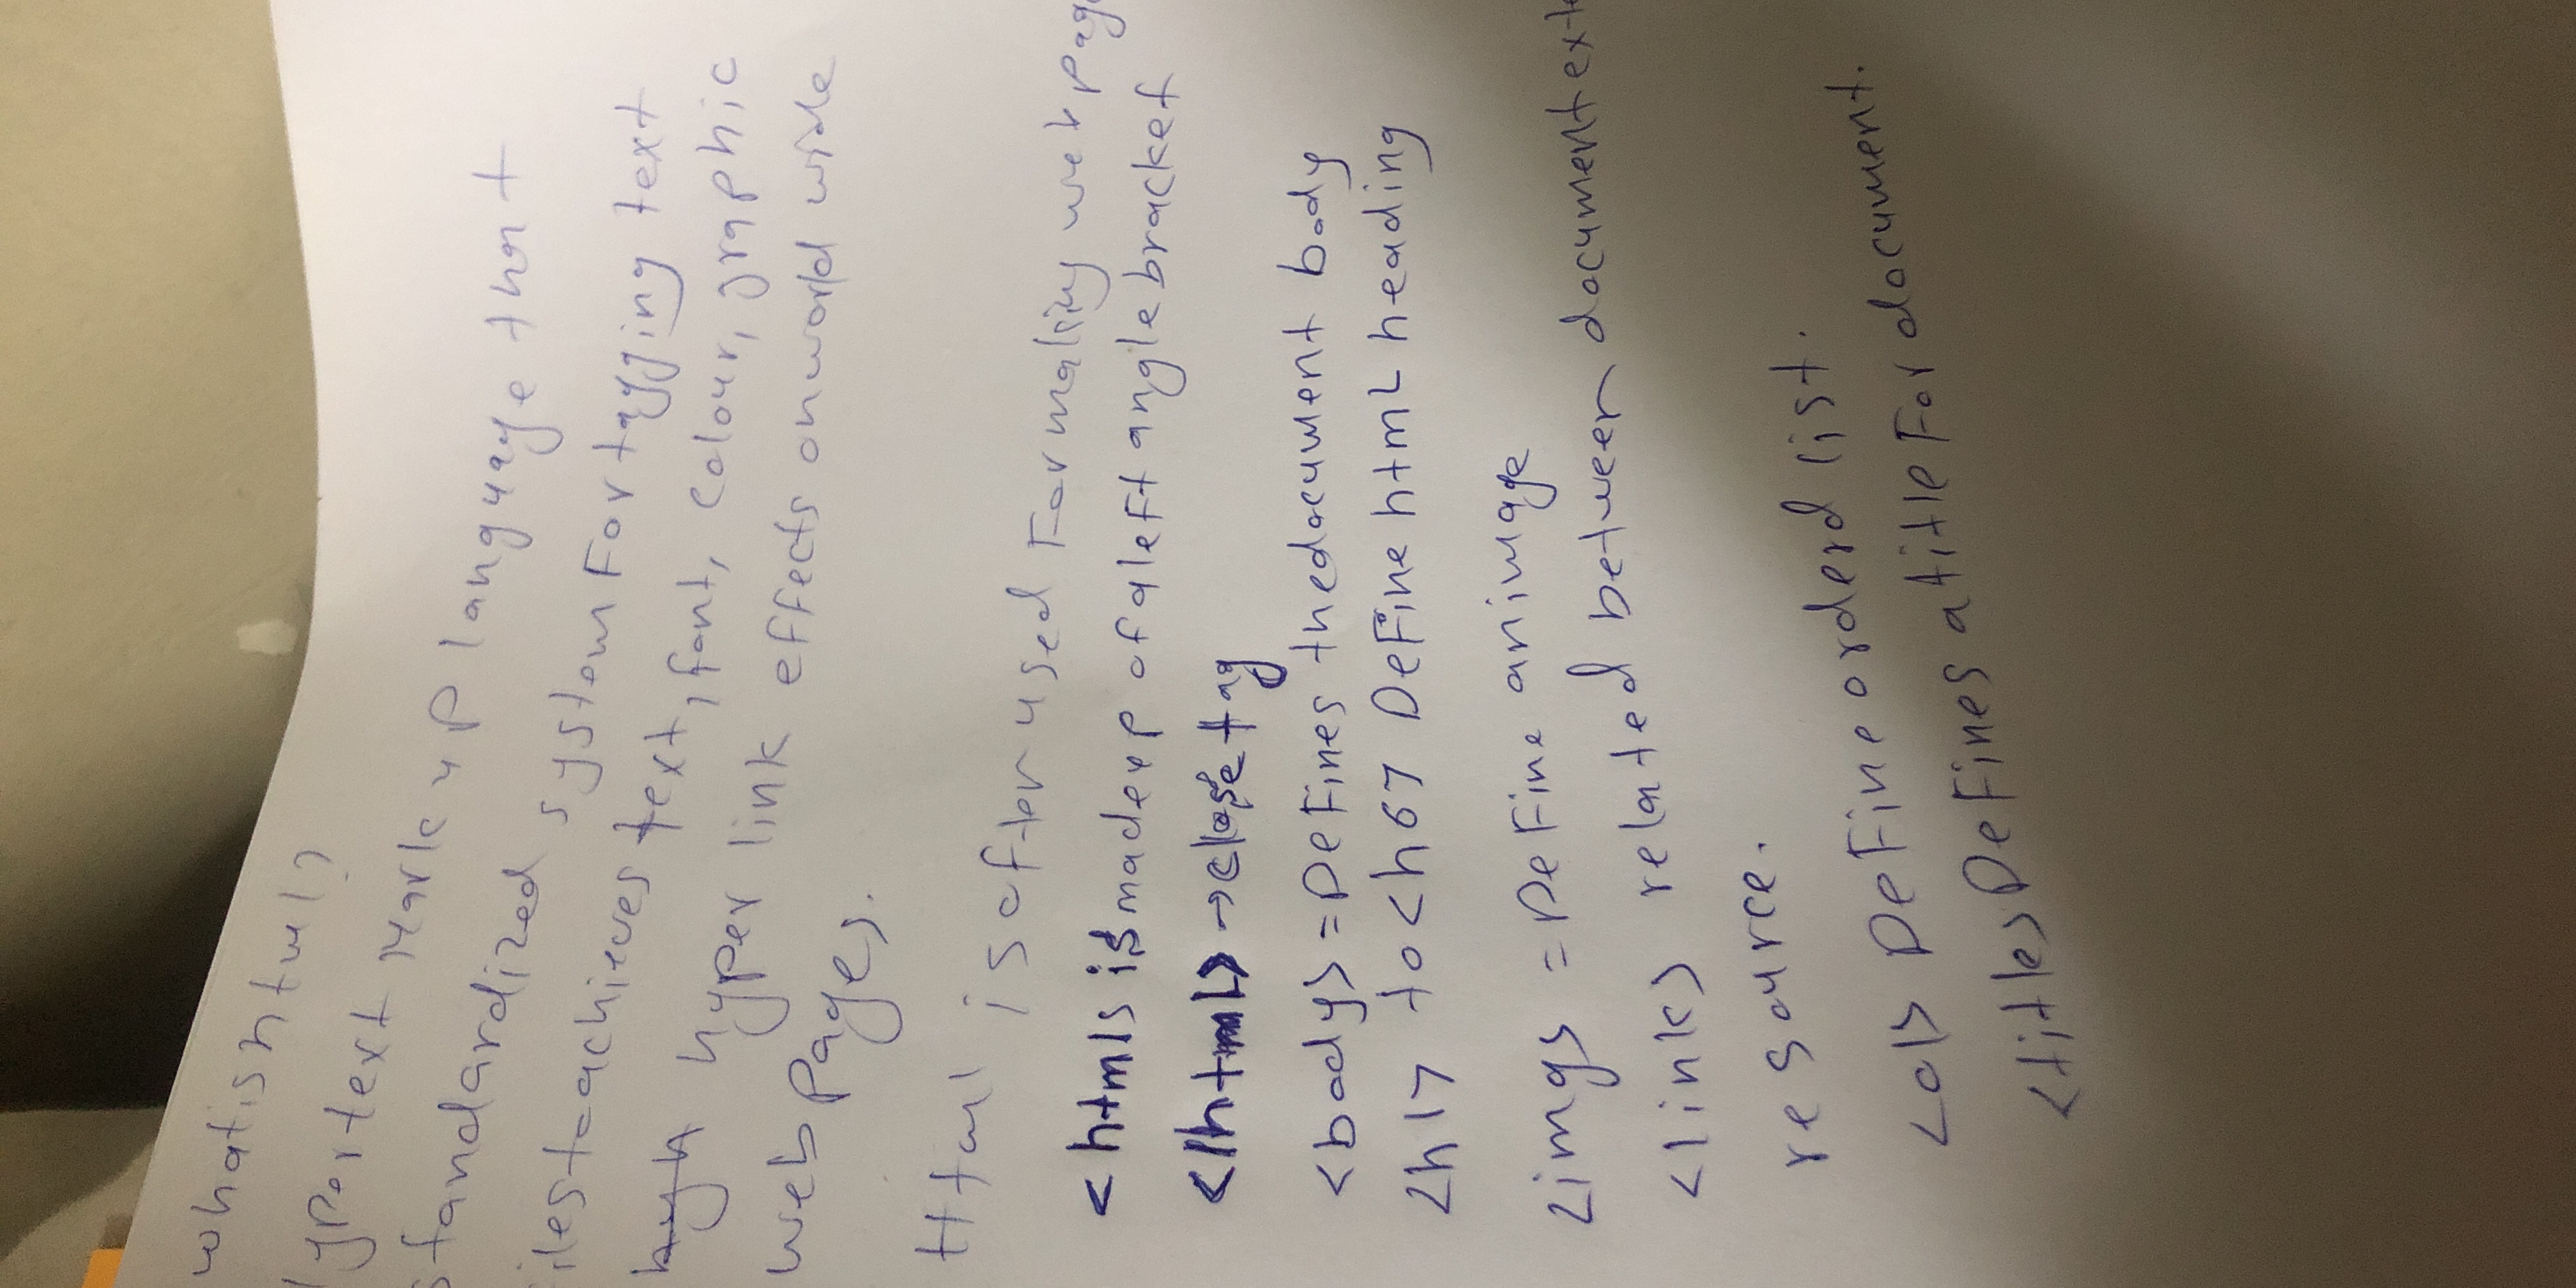 what is html?
yportext Markup language that
standardized system For tagging text
iles to achieves text, font, colour, graphic
hyper link effects on world wide
web pages.
Html is often used Formaliny web page
<html> is made up of a left angle bracket
</html> → close tag
<body> = DeFines the document body
<h1> to <h6> DeFine htmL heading
<img> = DeFine an image
<link> related between document exte
resource.
<ol> DeFine orderd list.
<title> DeFines a title For document.